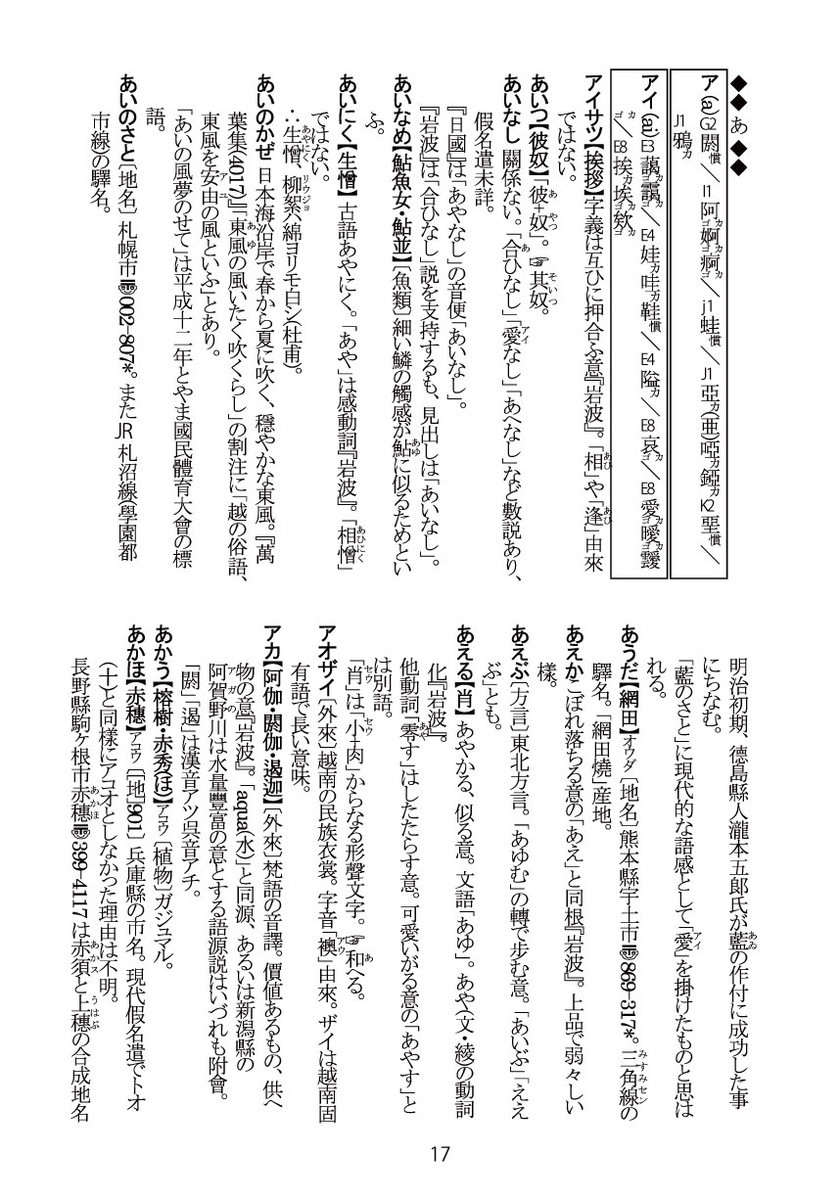 ◆◆ あ ◆◆
ア(a)G2 閼慣／I1 阿婀痾／j1 蛙慣／J1 亞(亜)啞錏 K2 堊慣／
J1 鴉カ
アイ(ai)E3 藹靄／E4 娃哇鞋慣／E4 隘／E8 哀／E8 愛曖靉
／E8 挨埃欸
アイサツ【挨拶】字義は互ひに押合ふ意『岩波』。「相」や「逢」由來
ではない。
あいつ【彼奴】「彼+奴」。☞其奴。
あいなし 關係ない。「合ひなし」「愛なし」「あへなし」など數説あり、
假名遣未詳。
『日國』は「あやなし」の音便「あいなし」。
『岩波』は「合ひなし」説を支持するも、見出しは「あいなし」。
あいなめ【鮎魚女・鮎並】〔魚類〕細い鱗の觸感が鮎に似るためとい
ふ。
あいにく【生憎】 古語あやにく。「あや」は感動詞『岩波』。「相憎」
ではない。
∴生憎、柳絮ハ綿ヨリモ白シ(杜甫)。
あいのかぜ 日本海沿岸で春から夏に吹く、穩やかな東風。『萬
葉集(4017)』「東風の風いたく吹くらし」の割注に「越の俗語、
東風を安由の風といふ」とあり。
「あいの風夢のせて」は平成十二年とやま國民體育大會の標
語。
あいのさと〔地名〕札幌市〠002-807*。また JR 札沼線(學園都
市線)の驛名。
明治初期、德島縣人瀧本五郎氏が藍の作付に成功した事
にちなむ。
「藍のさと」に現代的な語感として「愛」を掛けたものと思は
れる。
あうだ【網田】オウダ〔地名〕熊本縣宇土市〠869-317*。三角線の
驛名。「網田燒」産地。
あえか こぼれ落ちる意の「あえ」と同根『岩波』。上品で弱々しい
樣。
あえぶ〔方言〕東北方言。「あゆむ」の轉で步む意。「あいぶ」「ええ
ぶ」とも。
あえる【肖】 あやかる、似る意。文語「あゆ」。あや(文・綾)の動詞
化『岩波』。
他動詞「零す」はしたたらす意。可愛いがる意の「あやす」と
は別語。
「肖」は「小+肉」からなる形聲文字。☞和へる。
アオザイ〔外來〕越南の民族衣裳。字音「襖」由來。ザイは越南固
有語で長い意味。
アカ【阿伽・閼伽・遏迦】〔外來〕梵語の音譯。價値あるもの、供へ
物の意『岩波』。「aqua(水)」と同源、あるいは新潟縣の
阿賀野川は水量豐富の意とする語源説はいづれも附會。
「閼」「遏」は漢音アツ呉音アチ。
あかう【榕樹・赤秀(ほ)】アコウ〔植物〕ガジュマル。
あかほ【赤穗】アコウ〔地901〕兵庫縣の市名。現代假名遣でトオ
(十)と同樣にアコオとしなかった理由は不明。
長野縣駒ヶ根市赤穗〠399-4117 は赤須と上穗の合成地名
17